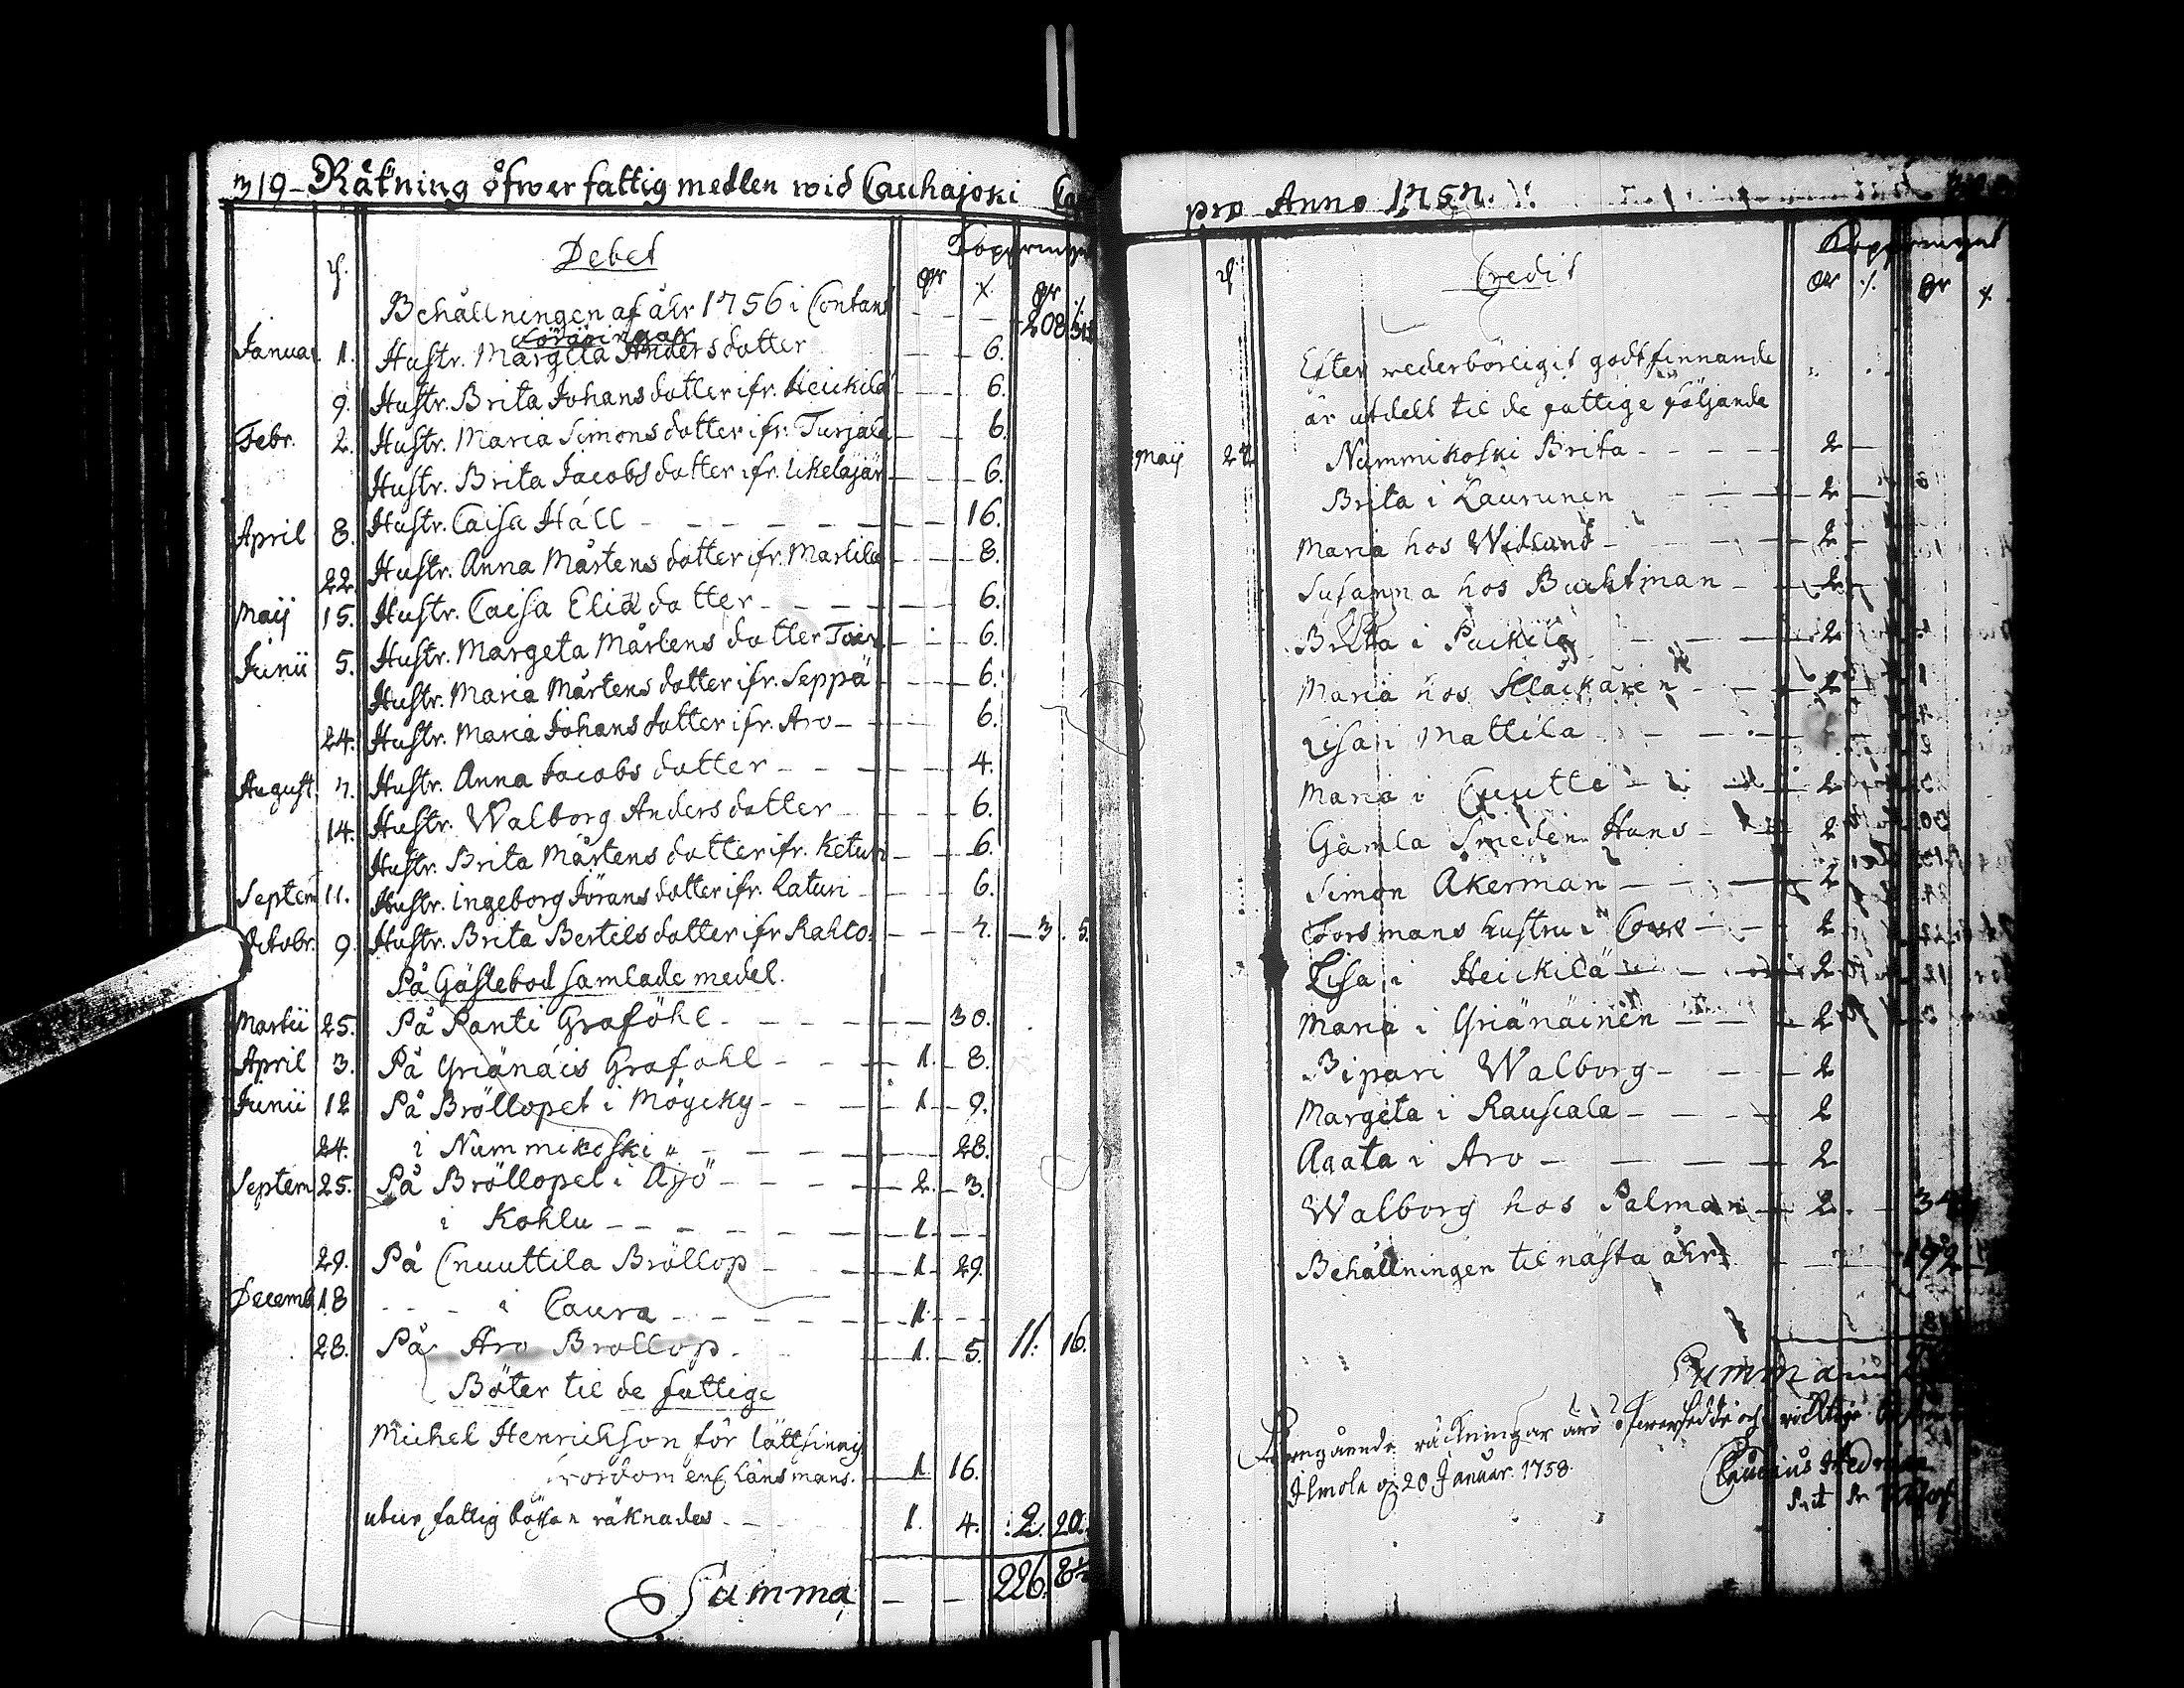 319 Räkning öfwer fattig medlen wid Cauhajoki
Debet
Kopparmynt
Behållningen af åhr 1756 i Contant - - - 208
Januar. 1. Hustr. Margeta Andersdotter - - 6.
9. Hustr. Brita Johansdotter ifr. Heickilä - - 6.
Febr. 2. Hustr. Maria Simonsdotter ifr. Turjala - - 6.
Hustr. Brita Jacobsdotter ifr. Ukelajär - - 6.
April 8. Hustr. Caisa Håll - - - - - - 16.
22 Hustr. Anna Mårtensdotter ifr. Martila - - 8.
Maij 15. Hustr. Caisa Eliædotter - - - - 6.
Junii 5. Hustr. Margeta Mårtensdotter - - 6.
Hustr. Maria Mårtensdotter ifr. Seppä - - 6.
24. Hustr. Maria Johansdotter ifr. Aro - - 6.
August. 7. Hustr. Anna Jacobsdotter - - - 4.
14. Hustr. Walborg Andersdotter - - 6.
Hustr. Brita Mårtensdotter ifr. Keturi - - 6.
Septem 11. Hustr. Ingeborg Jöransdotter ifr. Laturi - - 6.
Octobr. 9. Hustr. Brita Bertelsdotter ifr Rahko - - 7. - 3. 5.
På Gästebod samlade medel.
Martii 25. På Panti Graföhl - - - - 30.
April 3. På Yriänäis Grafohl - - 1. 8.
Junii 12 På Bröllopet i Möycky - - - 1 - 9.
24. i Nummikoski " - - - - 28.
Septem 25. På Bröllopet i Äijö - - - 2. - 3.
i Kohlu - - - - - 1. - -
29. På Cnuuttila Bröllop - - 1. 29.
Decemb 18 - - - i Caura - - - - 1. - -
28. På Aro Bröllop. - - 1. 5. 11. 16.
Böter til de fattige
Michel Henrichson för lättsinnig
ens länsmans. 1 16.
utur fattig bössan räknades - - 1. 4. 2. 20.
Summa - - 226. 8½
pro Anno 1757.
Credit
Kopparmynt
Efter wederbörligit godtfinnande
är utdelt til de fattige följande
Maij 22 Nummikoski Brita - - - - - 2 -
Brita i Laurunen - - - 2 -
Maria hos Widlund - - - 2 -
Susanna hos Buchtman - - 2 -
Brita i Puckila - - - 2
Maria hos Klackaren - - - 2
Lisa i Mattila - - - -
Maria i Cnutti - - - 2
Gamla Smeden Hans - - 2
Simon Åkerman - - - 2
Forsmans hustru i - - 2
Lisa i Heickilä - - - 2
Maria i Yriänäinen - - - 2
Pipari Walborg - - - 2
Margeta i Rauscala - - - - 2
Agata i Aro - - - - 2
Walborg hos Palman - 2. - 34
Behållningen til nästa åhr - - - 192
Summa
Föregående räckningar äro öfwersedde och richtige
Ilmola d. 20 Januar. 1758.
Claudius Hedman